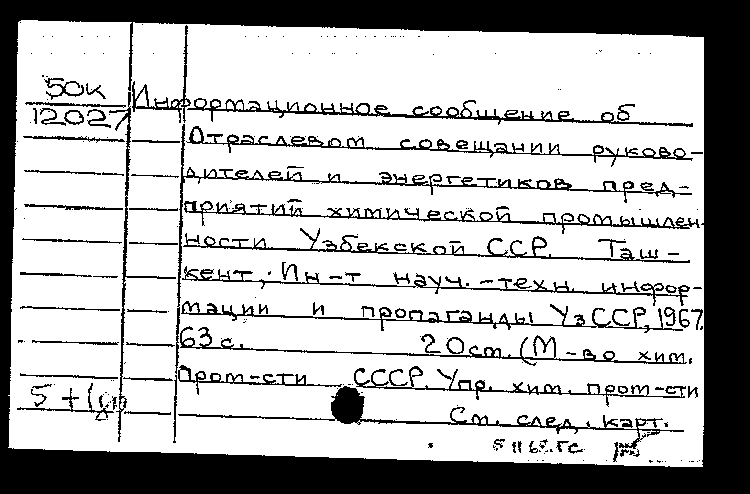 50к
12027
Информационное сообщение об
Отраслевом совещании руково-
дителей и энергетиков пред-
приятий химической промышлен-
ности Узбекской ССР. Таш-
кент, Ин-т науч.-техн. инфор-
мации и пропаганды УзССР, 1967.
63 с. 20 см. (М-во хим.
пром-сти СССР. Упр. хим. пром-сти
5+1
См. след. карт.